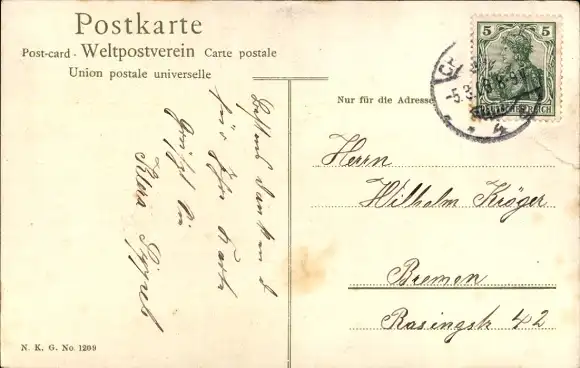 Postkarte
Post-card - Weltpostverein Carte postale
Union postale universelle
Nur für die Adresse
5 5
DEUTSCHES REICH
-5.3. 8-9
Herrn
Wilhelm Kröger
Bremen
42
Besten Dank
für Ihre Karte
grüßt Sie
Klara
N. K. G. No. 1209